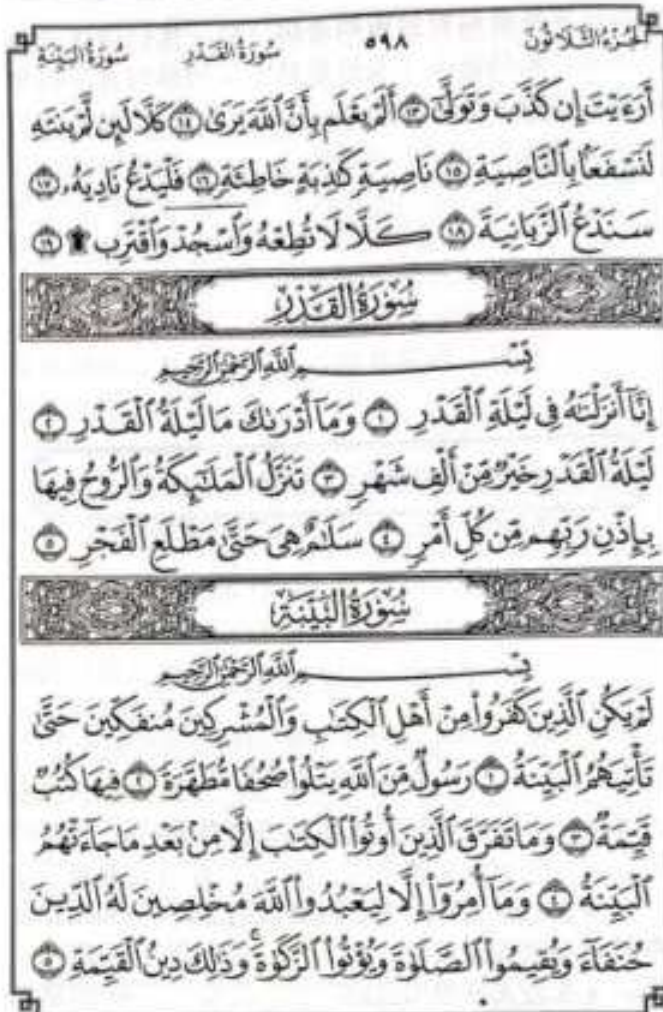 الجزء الثلاثون ٥٩٨ سورة القدر سورة البينة
أَرَءَيْتَ إِن كَذَّبَ وَتَوَلَّىٰٓ ١٣ أَلَمْ يَعْلَم بِأَنَّ ٱللَّهَ يَرَىٰ ١٤ كَلَّا لَئِن لَّمْ يَنتَهِ
لَنَسْفَعًۢا بِٱلنَّاصِيَةِ ١٥ نَاصِيَةٍ كَٰذِبَةٍ خَاطِئَةٍ ١٦ فَلْيَدْعُ نَادِيَهُۥ ١٧
سَنَدْعُ ٱلزَّبَانِيَةَ ١٨ كَلَّا لَا تُطِعْهُ وَٱسْجُدْ وَٱقْتَرِب ۩ ١٩
سُورَةُ القَدْرِ
بِسْمِ ٱللَّهِ ٱلرَّحْمَٰنِ ٱلرَّحِيمِ
إِنَّآ أَنزَلْنَٰهُ فِى لَيْلَةِ ٱلْقَدْرِ ١ وَمَآ أَدْرَىٰكَ مَا لَيْلَةُ ٱلْقَدْرِ ٢
لَيْلَةُ ٱلْقَدْرِ خَيْرٌ مِّنْ أَلْفِ شَهْرٍ ٣ تَنَزَّلُ ٱلْمَلَٰٓئِكَةُ وَٱلرُّوحُ فِيهَا
بِإِذْنِ رَبِّهِم مِّن كُلِّ أَمْرٍ ٤ سَلَٰمٌ هِىَ حَتَّىٰ مَطْلَعِ ٱلْفَجْرِ ٥
سُورَةُ البَيِّنَةِ
بِسْمِ ٱللَّهِ ٱلرَّحْمَٰنِ ٱلرَّحِيمِ
لَمْ يَكُنِ ٱلَّذِينَ كَفَرُوا۟ مِنْ أَهْلِ ٱلْكِتَٰبِ وَٱلْمُشْرِكِينَ مُنفَكِّينَ حَتَّىٰ
تَأْتِيَهُمُ ٱلْبَيِّنَةُ ١ رَسُولٌ مِّنَ ٱللَّهِ يَتْلُوا۟ صُحُفًا مُّطَهَّرَةً ٢ فِيهَا كُتُبٌ
قَيِّمَةٌ ٣ وَمَا تَفَرَّقَ ٱلَّذِينَ أُوتُوا۟ ٱلْكِتَٰبَ إِلَّا مِنۢ بَعْدِ مَا جَآءَتْهُمُ
ٱلْبَيِّنَةُ ٤ وَمَآ أُمِرُوٓا۟ إِلَّا لِيَعْبُدُوا۟ ٱللَّهَ مُخْلِصِينَ لَهُ ٱلدِّينَ
حُنَفَآءَ وَيُقِيمُوا۟ ٱلصَّلَوٰةَ وَيُؤْتُوا۟ ٱلزَّكَوٰةَ ۚ وَذَٰلِكَ دِينُ ٱلْقَيِّمَةِ ٥